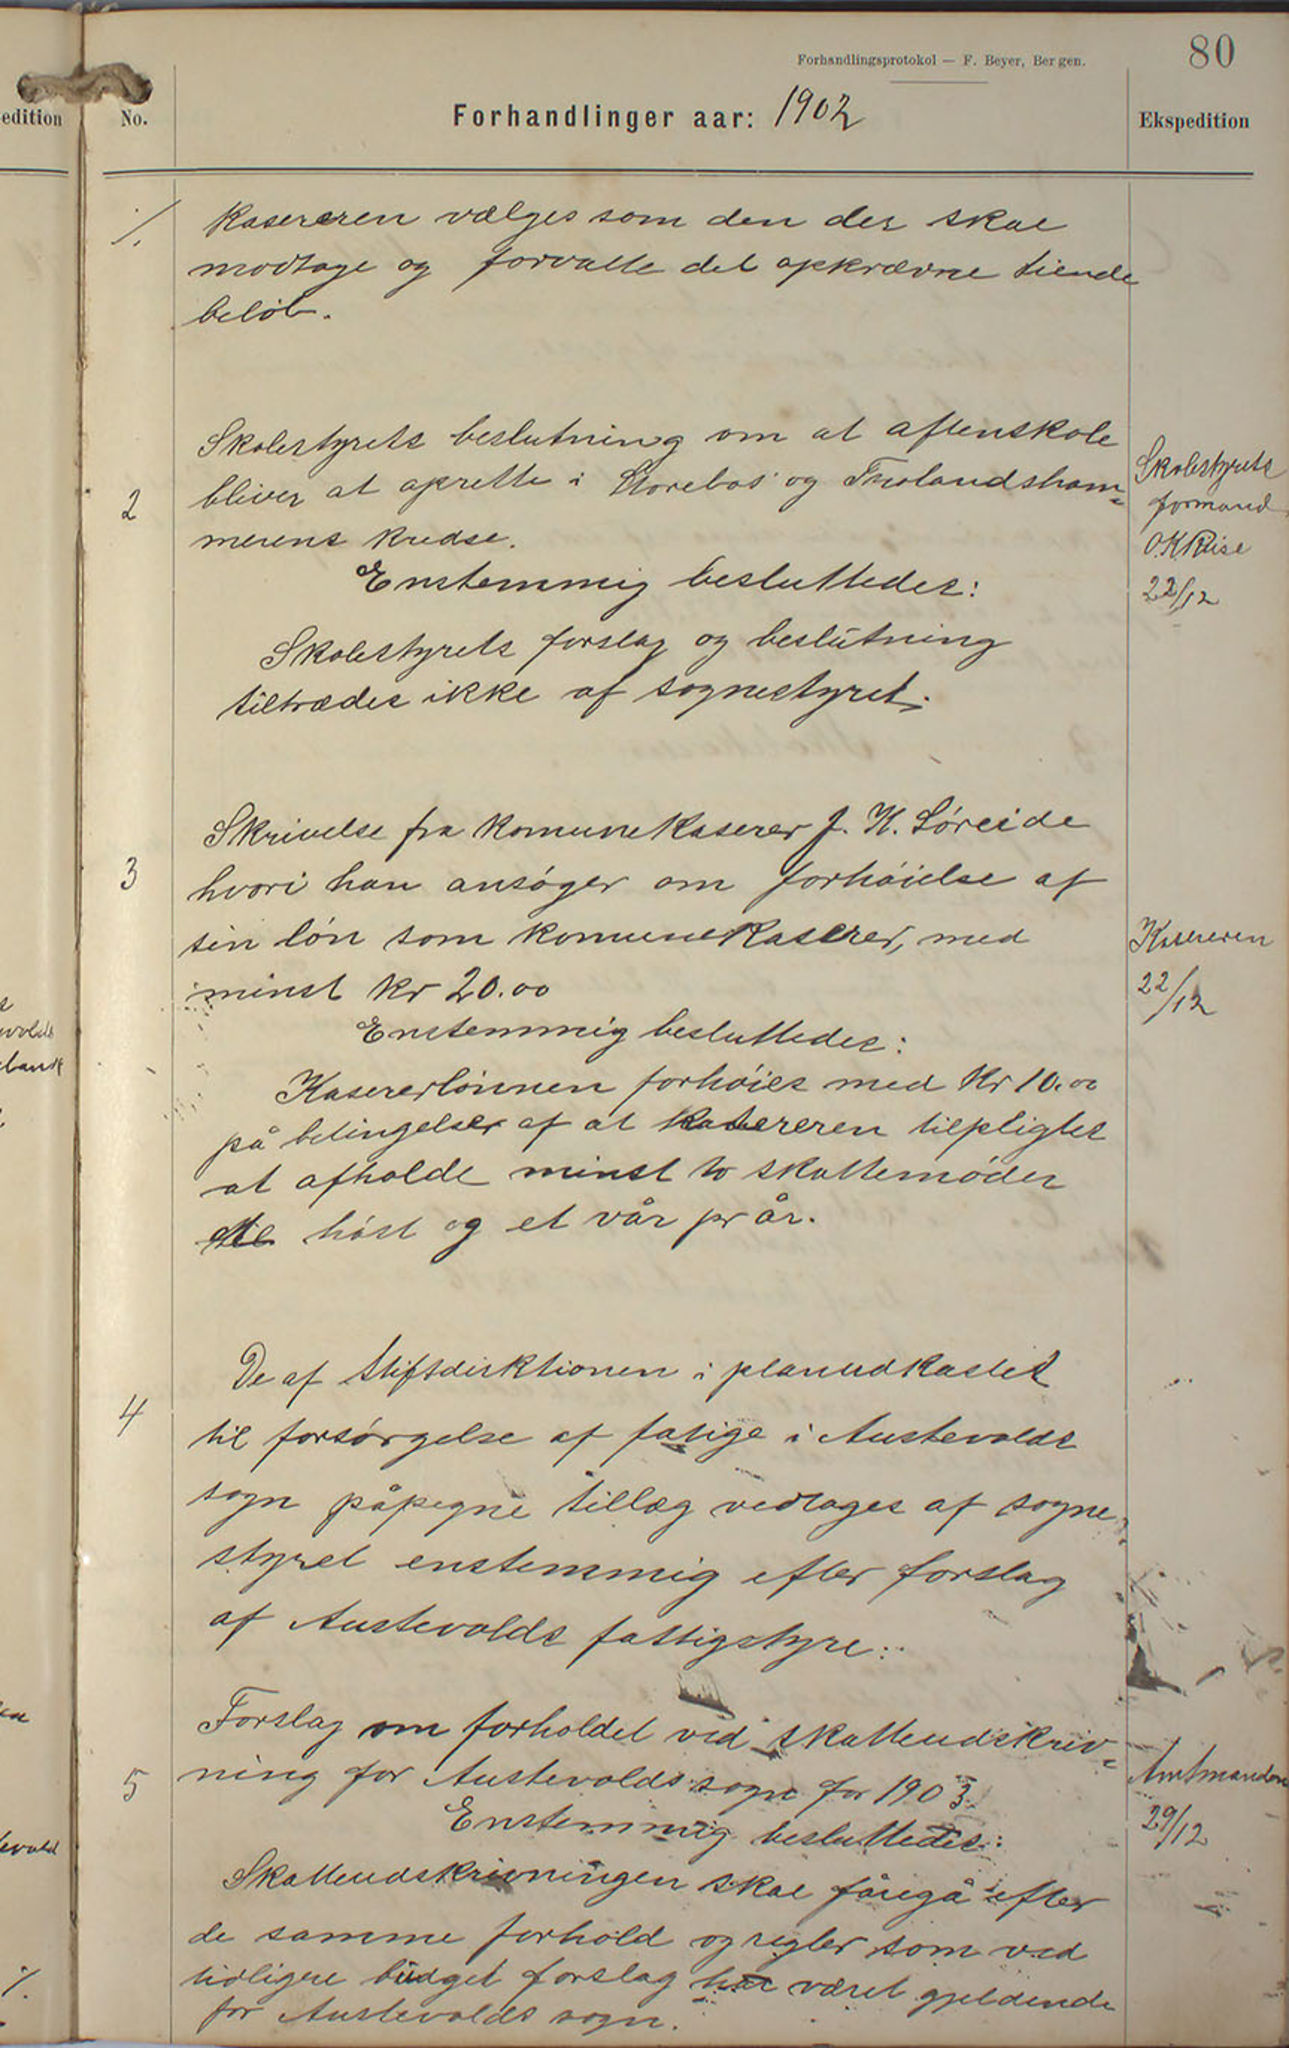 Forhandlingsprotokol — F. Beyer, Bergen.
80
edition
No.
Forhandlinger aar: 1902
Ekspedition
⁒
Kasereren vælges som den der skal
modtage og forvalte det opkrævne tiende
beløb.
2
Skolestyrets beslutning om at aftenskole
bliver at oprette i Storebø og Trolandsham-
merens kredse.
Enstemmig besluttedes:
Skolestyrets forslag og beslutning
tiltrædes ikke af sognestyret.
Skolestyrets
formand
O. K Riise
22/12
3
Skrivelse fra komunekaserer J. K. Søreide
hvori han ansøger om forhøielse af
sin løn som komunekaserer, med
minst kr 20.00
Enstemmig besluttedes:
Kasererlønnen forhøies med Kr 10.00
på betingelser af at kasereren tilpligtes
at afholde minst to skattemøder
høst og et vår pr år.
Kasereren
22/12
4
De af Stiftsdirktionen i planudkastet
til forsørgelse af fatige i Austevolds
sogn påpegne tillæg vedtages af sogne-
styret enstemmig efter forslag
af Austevolds fattigstyre.
5
Forslag om forholdet ved skatteudskriv-
ning for Austevolds sogn for 1903.
Enstemmig besluttedes:
Skatteudskrivningen skal foregå efter
de samme forhold og regler som ved
tidligere budget forslag har været gjeldende
for Austevolds sogn.
Amtmanden
29/12